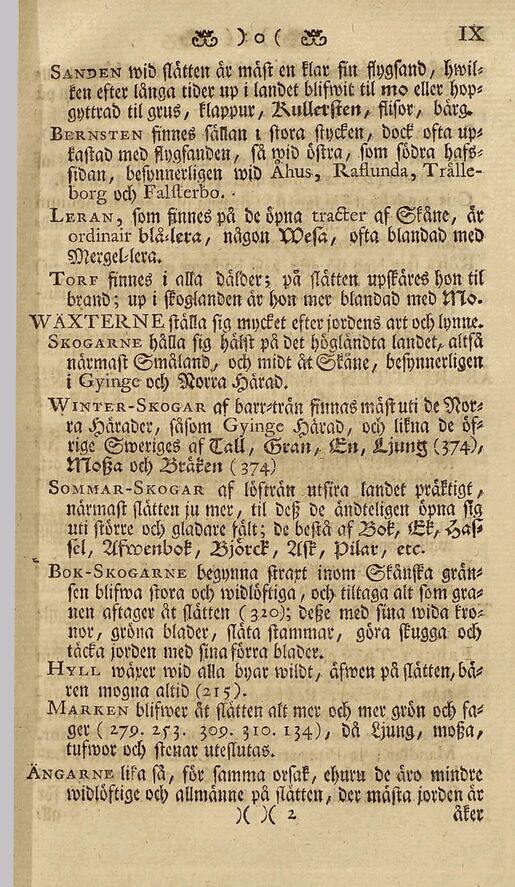 )o( IX
SANDEN wid slätten är mäst en klar fin flygsand, hwil-
ken efter långa tider up i landet blifwit til mo eller hop-
gyttrad til grus, klappur, Kullersten, flisor, bärg.
BERNSTEN finnes sällan i stora stycken, dock ofta up-
kastad med flygsanden, så wid östra, som södra hafs-
sidan, besynnerligen wid Åhus, Raflunda, Trålle-
borg och Falsterbo.
LERAN, som finnes på de öpna tracter af Skåne, är
ordinair blå-lera, någon Wesa, ofta blandad med
Mergel-lera.
TORF finnes i alla dälder; på slätten upskäres hon til
brand; up i skoglanden är hon mer blandad med Mo.
WÄXTERNE ställa sig mycket efter jordens art och lynne.
SKOGARNE hålla sig hälst på det högländta landet, altså
närmast Småland, och midt åt Skåne, besynnerligen
i Gyinge och Norra Härad.
WINTER-SKOGAR af barr-trän finnas mäst uti de Nor-
ra Härader, såsom Gyinge Härad, och likna de öf-
rige Sweriges af Tall, Gran, En, Ljung (374),
Moßa och Bräken (374)
SOMMAR-SKOGAR af löfträn utsira landet präktigt,
närmast slätten ju mer, til deß de ändteligen öpna sig
uti större och gladare fält; de bestå af Bok, Ek, Has-
sel, Afwenbok, Björck, Ask, Pilar, etc.
BOK-SKOGARNE begynna straxt inom Skånska grän-
sen blifwa stora och widlöftiga, och tiltaga alt som gra-
nen aftager åt slätten (320); deße med sina wida kro-
nor, gröna blader, släta stammar, göra skugga och
täcka jorden med sina förra blader.
HYLL wäxer wid alla byar wildt, äfwen på slätten, bä-
ren mogna altid (215).
MARKEN blifwer åt slätten alt mer och mer grön och fa-
ger (279. 253. 309. 310. 134), då Ljung, moßa,
tufwor och stenar uteslutas.
ÄNGARNE lika så, för samma orsak, ehuru de äro mindre
widlöftige och allmänne på slätten, der mästa jorden är
)( )( 2 åker